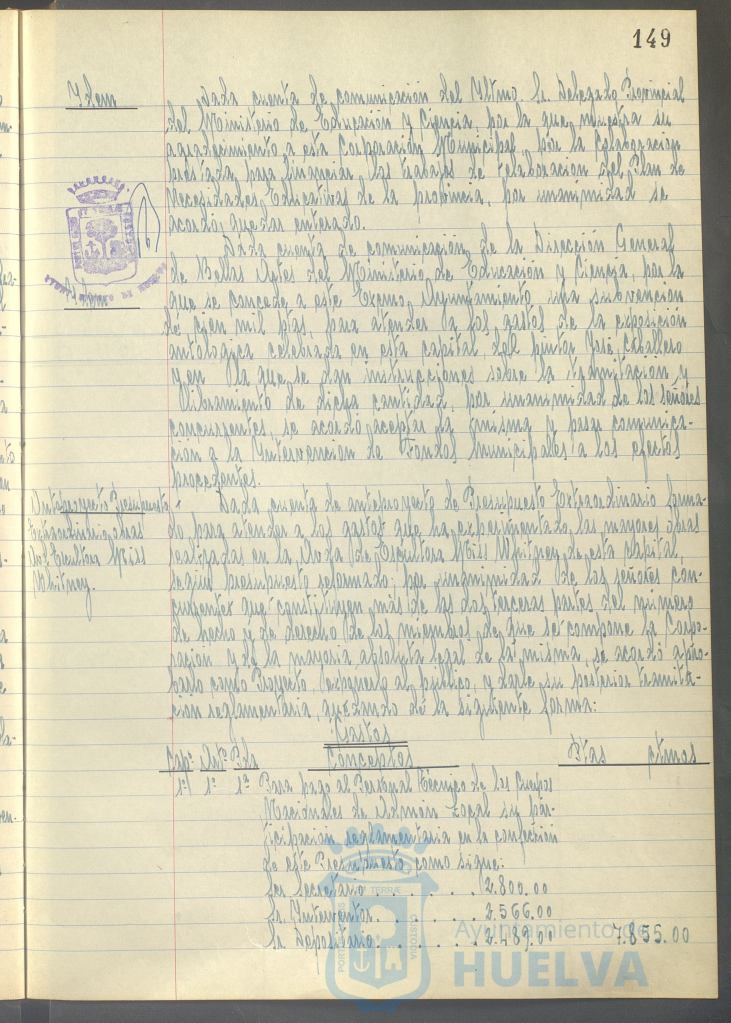 149
Idem
Dada cuenta de comunicación del Iltmo. Sr. Delegado Provincial
del Ministerio de Educación y Ciencia, por la que muestra su
agradecimiento a esta Corporación Municipal, por la colaboración
prestada, para financiar los trabajos de elaboración del Plan de
Necesidades Educativas de la provincia, por unanimidad se
acordó, quedar enterado.
Idem
Dada cuenta de comunicación de la Dirección General
de Bellas Artes del Ministerio de Educación y Ciencia, por la
que se concede a este Excmo. Ayuntamiento una subvención
de cien mil ptas, para atender a los gastos de la exposición
antologica celebrada en esta capital, del pintor José Caballero
y en la que se dan instrucciones sobre la tramitación y
libramiento de dicha cantidad, por unanimidad de los señores
concurrentes, se acordó aceptar la misma y pasar comunica-
ción a la Intervención de Fondos Municipales a los efectos
procedentes.
Anteproyecto Presupuesto
Extraordinario obras
Miss
Whitney.
Dada cuenta de anteproyecto de Presupuesto Extraordinario forma-
do para atender a los gastos que ha experimentado, las mayores obras
realizadas en la de Escultora Miss Whitney de esta capital,
según presupuesto reformado; por unanimidad de los señores con-
currentes que constituyen más de las dos terceras partes del número
de hecho y de derecho de los miembros, de que se compone la Corpo-
ración y de la mayoria absoluta legal de la misma, se acordó apro-
barlo como Proyecto, exponerlo al público, y darle su posterior tramita-
ción reglamentaria, quedando de la siguiente forma:
Gastos
Capº Artº Pda Conceptos Ptas ctmos
1º 1º 1ª Para pago al Personal Técnico de los Cuerpos
Nacionales de Admón Local su par-
ticipación reglamentaria en la confección
de este Presupuesto como sigue:
Sr. Secretario . . . . . . . 2.800.00
Sr. Interventor. . . . . . 2.566.00
Sr. Depositario. . . . . . 2.489.00 7.855.00
Ayuntamiento de
HUELVA